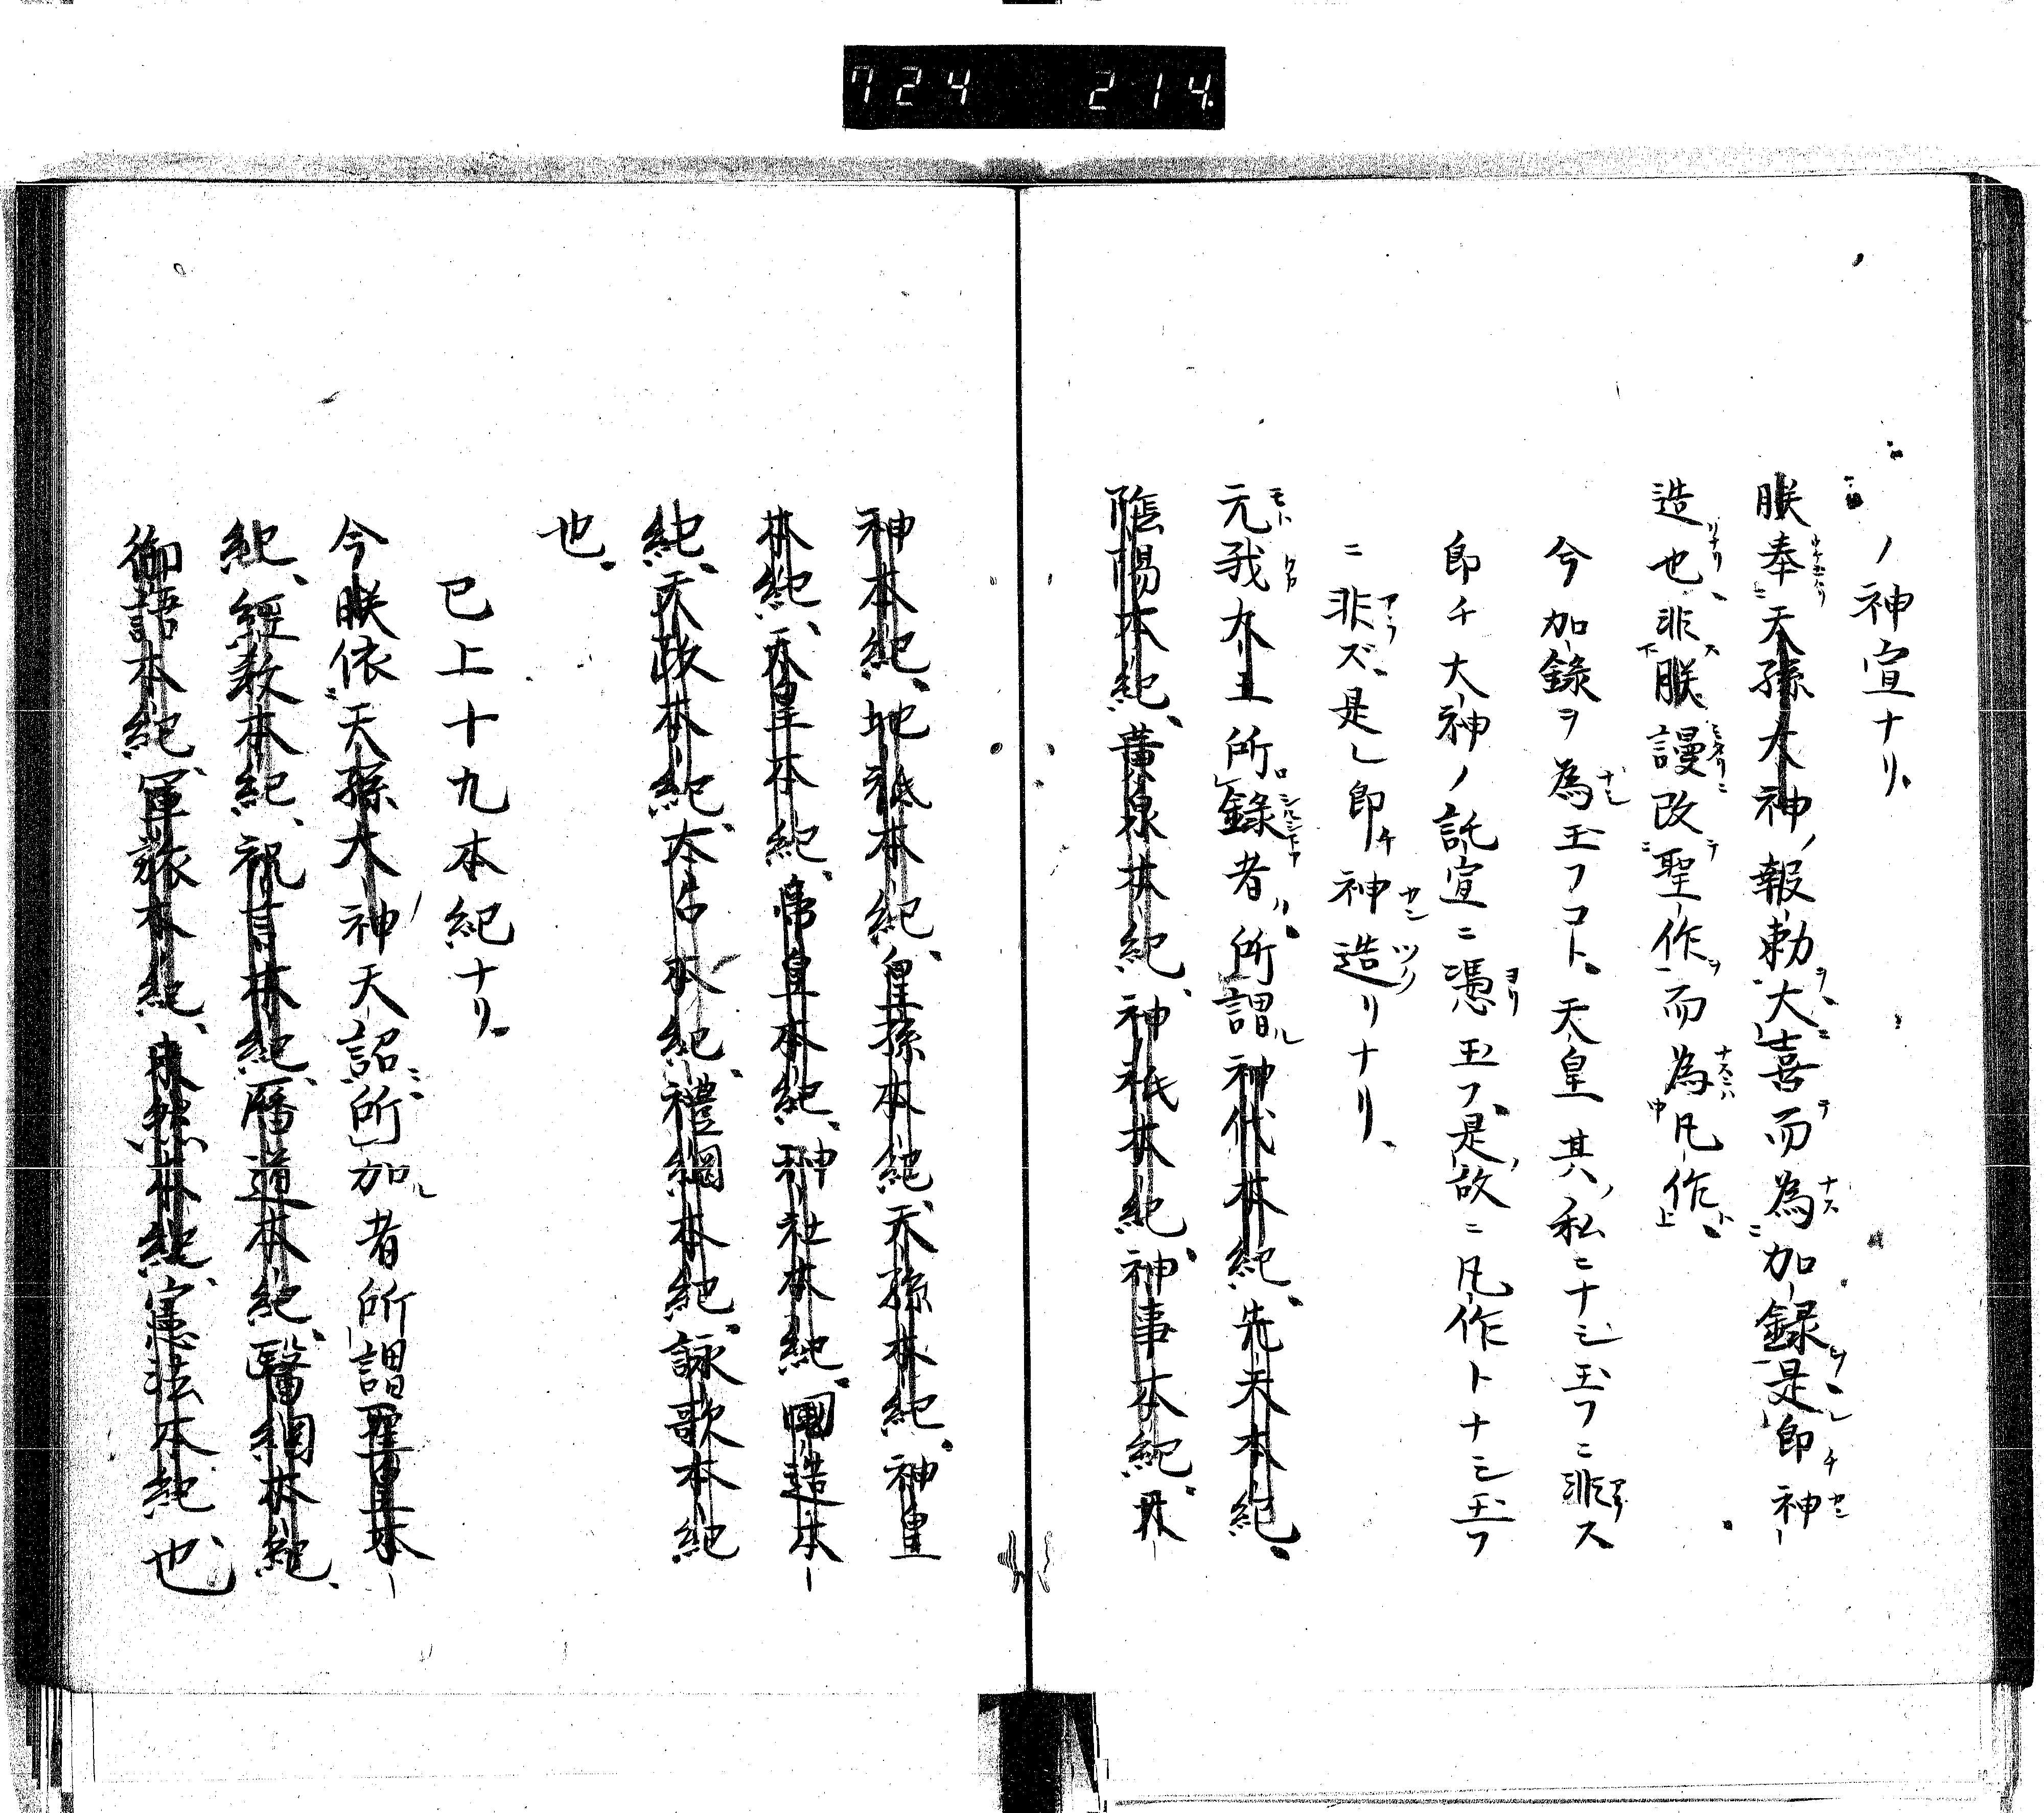 724 214
ノ神宣ナリ
朕奉天孫大神ノ報勅大喜而為加録是即神
造也非朕謾改聖作而為凡作
今加錄ヲ為玉フコト天皇其ノ私ニナシ玉フニ非ス
即チ大神ノ託宣ニ憑玉フ是故ニ凡作トナシ玉フ
ニ非ズ是レ即チ神造リナリ
元我九王所録者所謂神代本紀先天本紀
陰陽本紀黄泉本紀神祇本紀神事本紀
神本紀地祇本紀皇孫本紀天孫本紀神皇
本紀天皇本紀帝皇本紀神社本紀國造本
紀天政本紀太占本紀禮綱本紀詠歌本紀
也
已上十九本紀ナリ
今朕依天孫大神天詔所加者所謂聖皇本
紀經教本紀祝言本紀曆道本紀醫綱本紀
御語本紀軍旅本紀未然本紀憲法本紀也